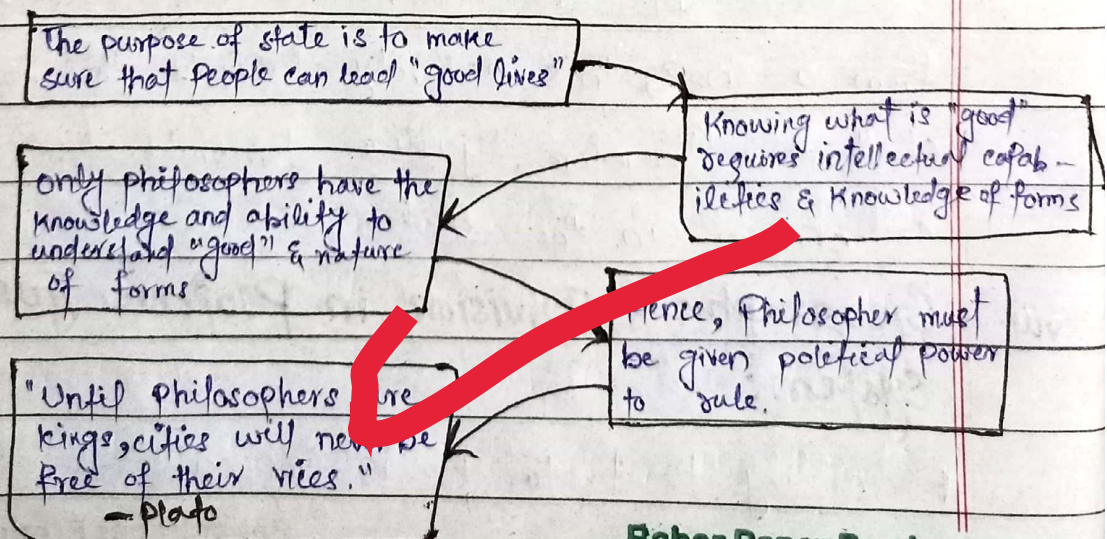 The purpose of state is to make
sure that People can lead "good lives"
Knowing what is "good"
requires intellectual capab-
ilities & Knowledge of forms
only philosophers have the
knowledge and ability to
understand "good" & nature
of forms
Hence, Philosopher must
be given political power
to rule.
"Until philosophers are
kings, cities will never be
free of their vices."
- Plato